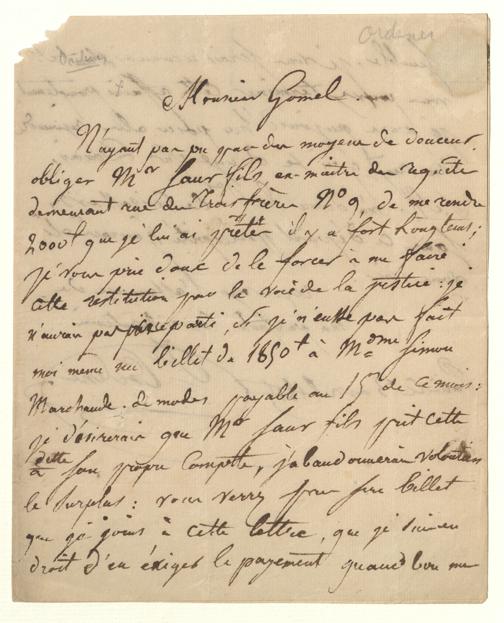 Ordener
Monsieur Gomel.
N'ayant pas pu par des moyens de douceur,
obliger Mr Saur fils ex-maitre des requete
demeurant rue des Trois frères N° 9, de me rendre
2000t que je lui ai prêter il y a fort longtems;
je vous prie donc de le forcer à me faire
cette restitution par la voie de la justice: je
n'aurais pas pris ce parti, si je n'eusse pas fait
moi meme un billet de 1850t à Mdme Simon
Marchande de modes payable au 15 de ce mois:
je désirerais que Mr Saur fils prit cette
dette à son propre Compte, j'abandonnerais volontiers
le surplus: vous verrez par son billet
que je joins à cette lettre, que je suis en
droit d'en éxiger le payement quand bon me